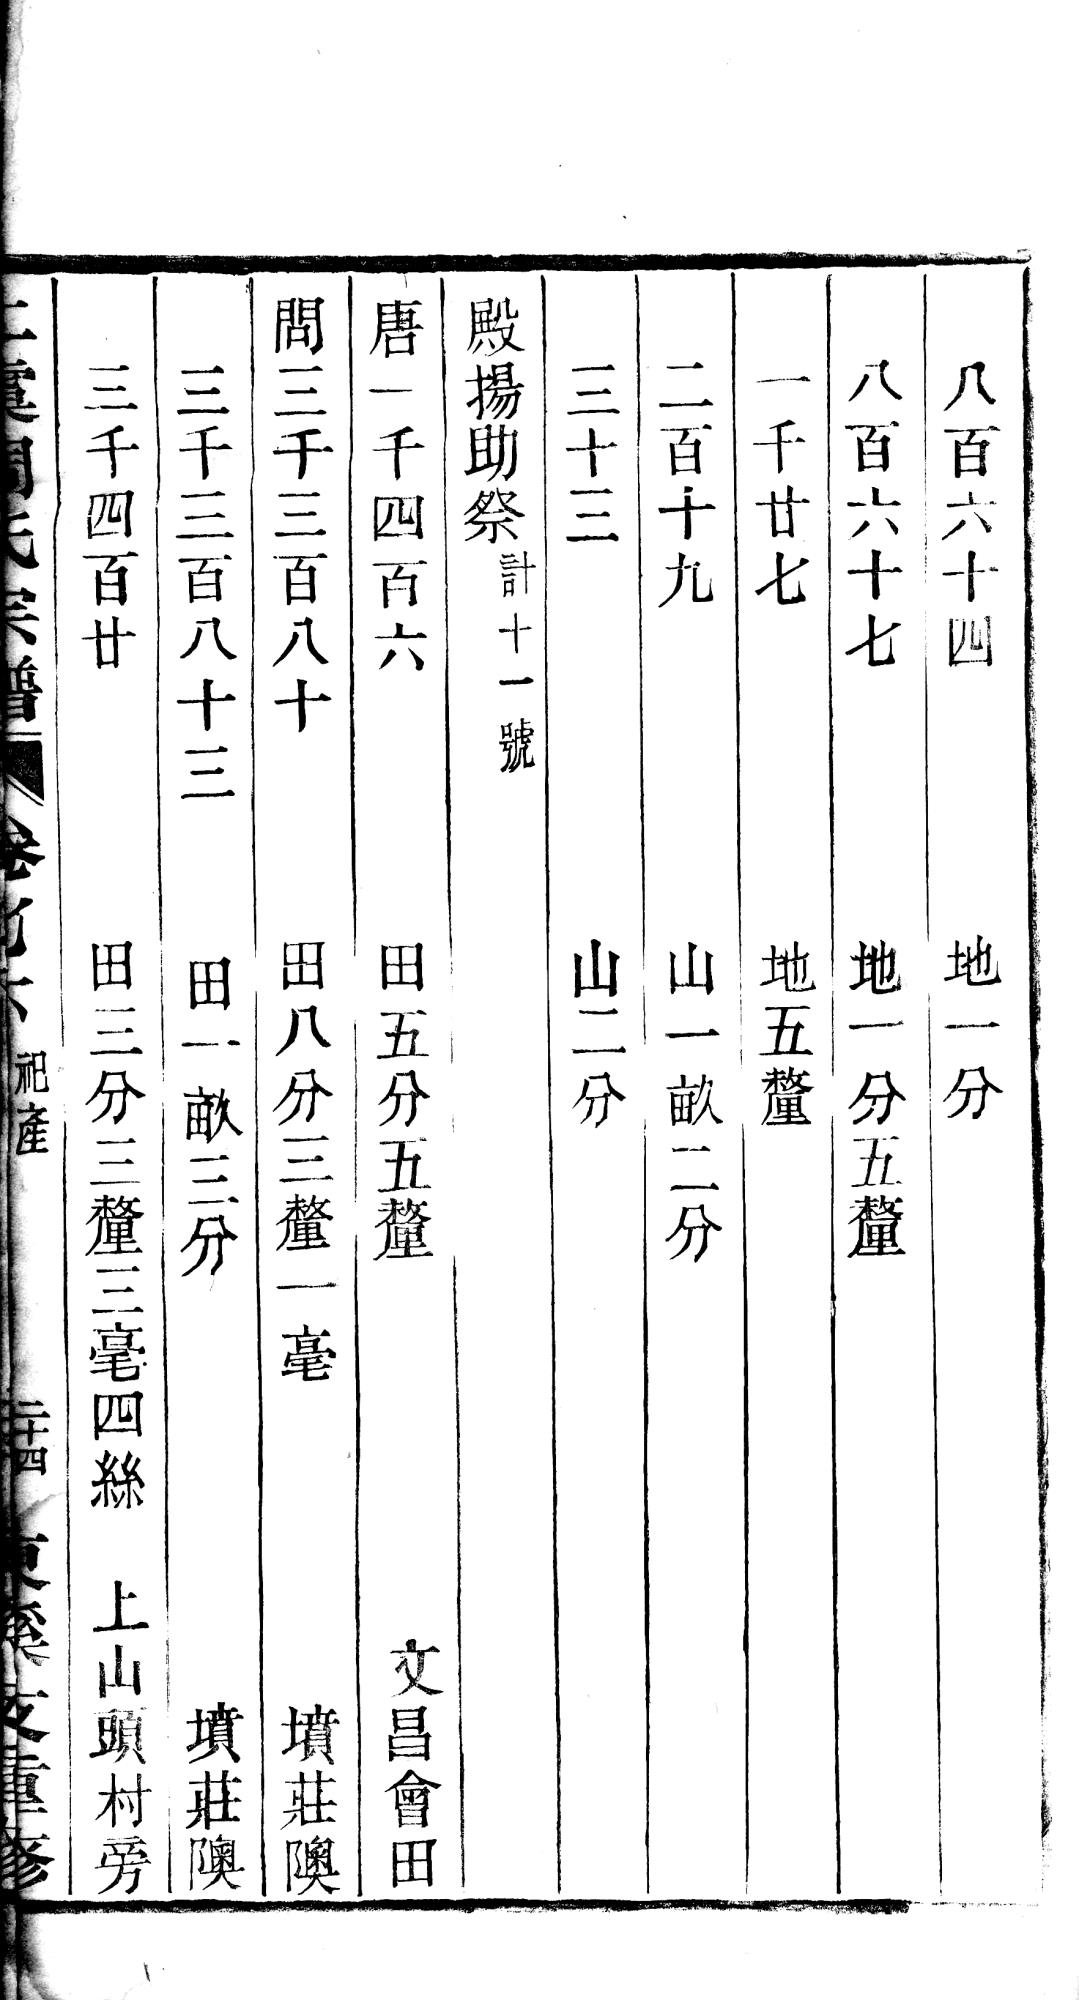 八百六十四　地一分
八百六十七　地一分五釐
一千廿七　地五釐
二百十九　山一畝二分
三十三　山二分
殿揚助祭 計十一號
唐一千四百六　田五分五釐　文昌會田
問三千三百八十　田八分三釐一毫　墳莊隩
三千三百八十三　田一畝三分　墳莊隩
三千四百廿　田三分三釐三毫四絲　上山頭村旁
虞周氏宗譜　卷　祀產　二十四　東溪支重修